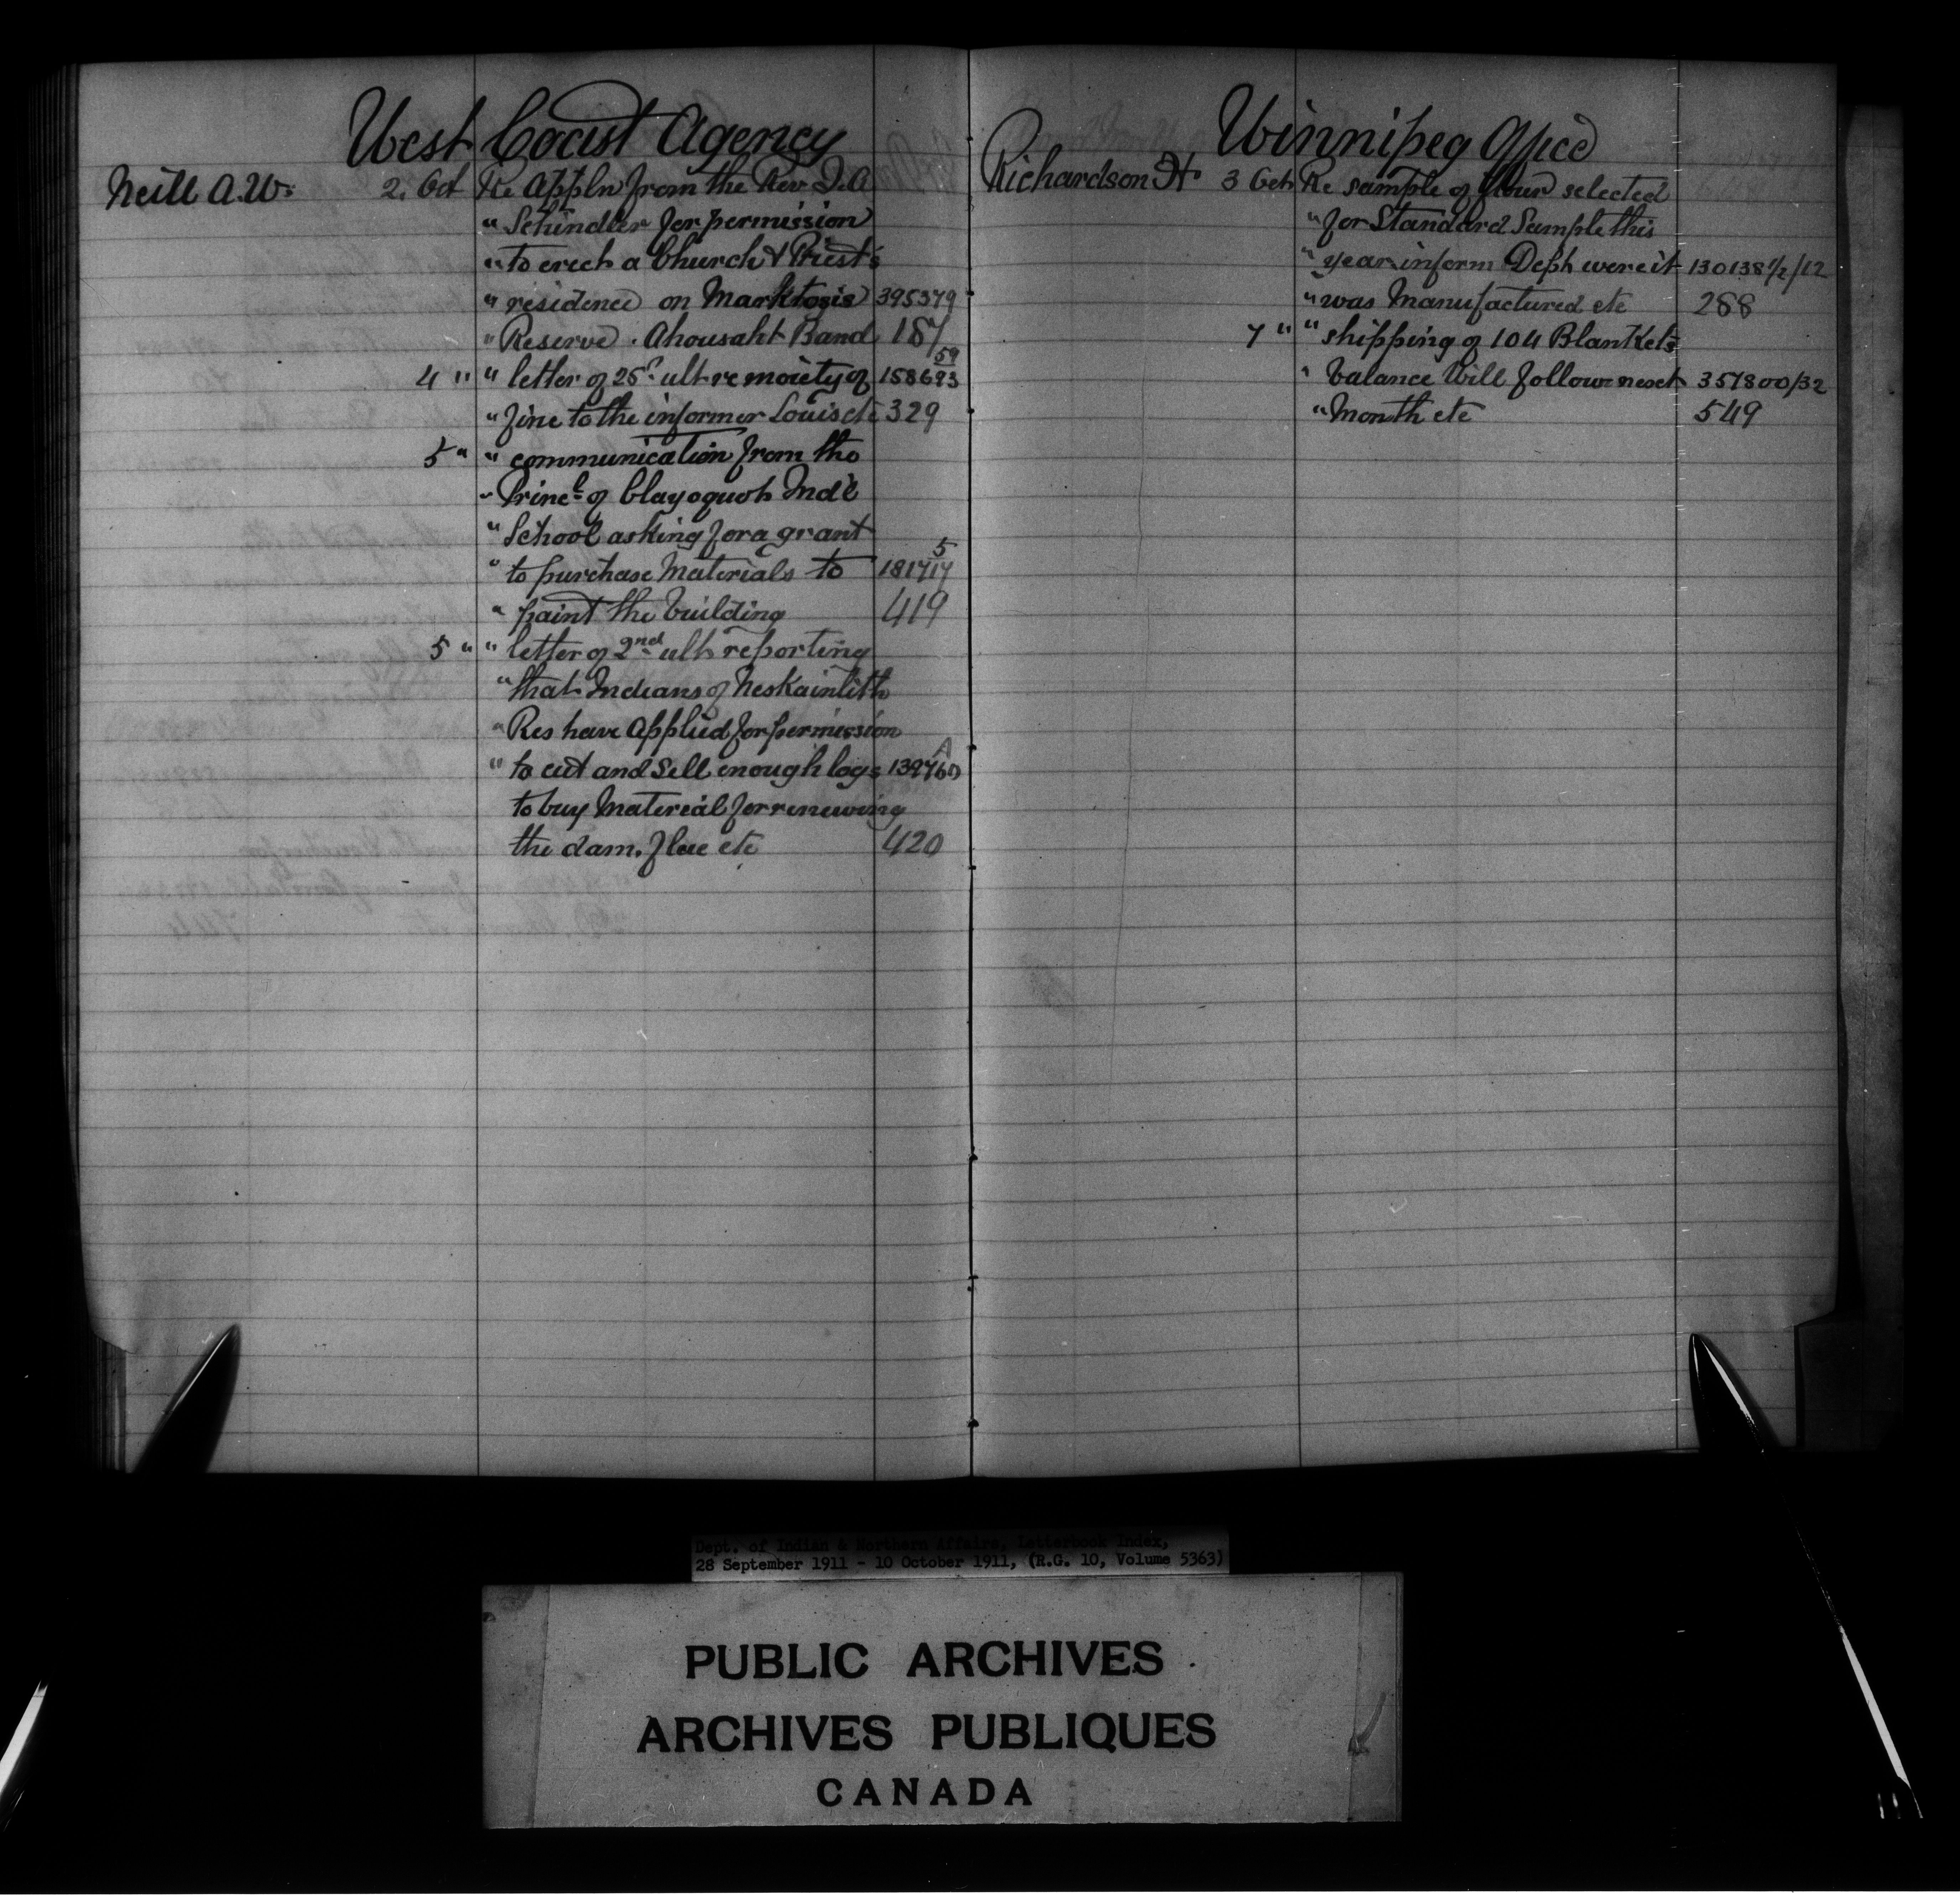 West Coast Agency
Neill A.W. 2. Oct Re Appln from the Rev J.A
" Schindler for permission
" to erect a Church & Priest's
" residence on Marktosis 395379
" Reserve. Ahousaht Band 187
4 " " letter of 25th ult re moiety of 158693 59
" fine to the informer Louis etc 329
5 " " communication from the
" Princl of Clayoquot Ind'l
" School asking for a grant
" to purchase Materials to 181717 5
" paint the building 419
5 " " letter of 2nd ult reporting
" that Indians of Neskainlith
" Res have Applied for permission
" to cut and sell enough logs 139760 A
to buy Material for renewing
the dam. flue etc 420
Winnipeg Office
Richardson H. 3 Oct Re sample of flour selected
" for Standard Sample this
" year inform Dept were it 130138 1/2/12
" was Manufactured etc 288
7 " " shipping of 104 Blankets
" balance will follow next 357800/32
" Month etc 549
Dept. of Indian & Northern Affairs, Letterbook Index,
28 September 1911 - 10 October 1911, (R.G. 10, Volume 5363)
PUBLIC ARCHIVES
ARCHIVES PUBLIQUES
CANADA